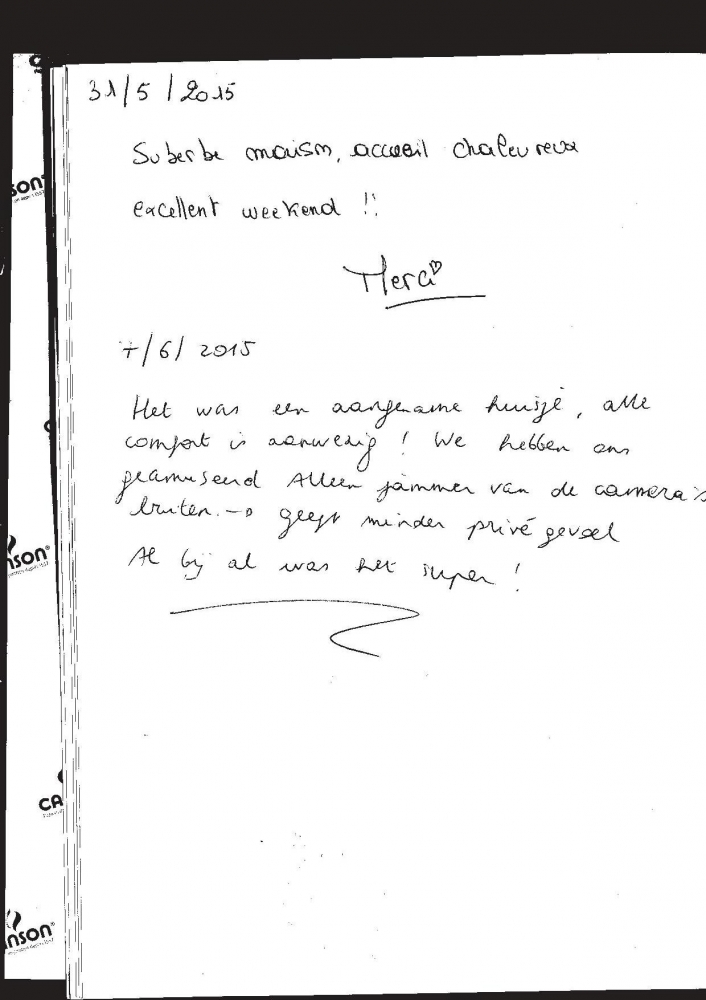 31/5/2015
Suberbe maison, accueil chaleureux
excellent weekend !!
Merci
7/6/2015
Het was een aangename huisje, alle
comfort is aanwezig ! We hebben ons
geamuseerd Alleen jammer van de camera's
buiten. → geeft minder privé gevoel
Al bij al was het super !
SON
NSON
CA
NSON